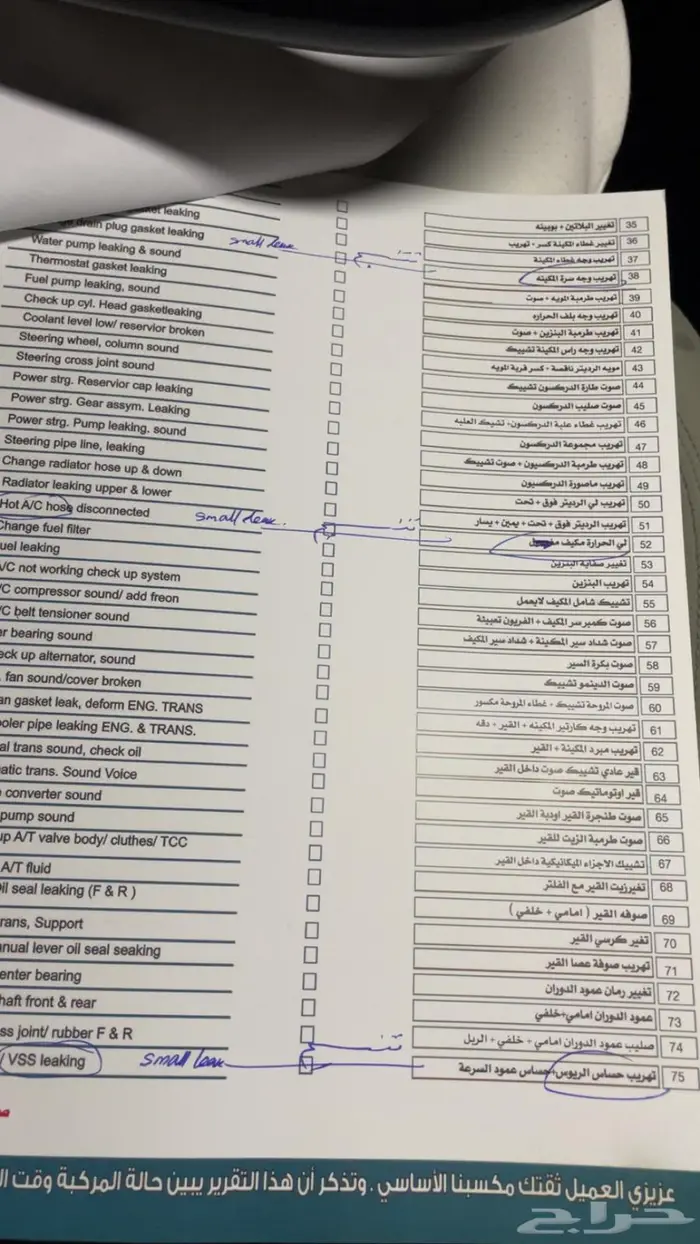 leaking
drain plug gasket leaking
Water pump leaking & sound
small leak
Thermostat gasket leaking
Fuel pump leaking, sound
Check up cyl. Head gasketleaking
Coolant level low/ reservior broken
Steering wheel, column sound
Steering cross joint sound
Power strg. Reservior cap leaking
Power strg. Gear assym. Leaking
Power strg. Pump leaking. sound
Steering pipe line, leaking
Change radiator hose up & down
Radiator leaking upper & lower
Hot A/C hose disconnected
small leak.
Change fuel filter
uel leaking
/C not working check up system
/C compressor sound/ add freon
/C belt tensioner sound
er bearing sound
eck up alternator, sound
fan sound/cover broken
an gasket leak, deform ENG. TRANS
ooler pipe leaking ENG. & TRANS.
al trans sound, check oil
atic trans. Sound Voice
converter sound
pump sound
up A/T valve body/ cluthes/ TCC
A/T fluid
il seal leaking (F & R )
rans, Support
nual lever oil seal seaking
enter bearing
haft front & rear
ss joint/ rubber F & R
VSS leaking
small leak
35 تغيير البلاتين + بوبينه
36 تغيير غطاء المكينة كسر - تهريب
37 تهريب وجه غطاء المكينة
38 تهريب وجه سرة المكينه
39 تهريب طرمبة المويه + صوت
40 تهريب وجه بلف الحراره
41 تهريب طرمبة البنزين + صوت
42 تهريب وجه راس المكينة تشييك
43 مويه الرديتر ناقصة - كسر قربة المويه
44 صوت طارة الدركسون تشييك
45 صوت صليب الدركسون
46 تهريب غطاء علبة الدركسون- تشيك العلبه
47 تهريب مجموعة الدركسون
48 تهريب طرمبة الدركسيون + صوت تشييك
49 تهريب ماصورة الدركسيون
50 تهريب لي الرديتر فوق + تحت
51 تهريب الرديتر فوق + تحت + يمين + يسار
52 لي الحرارة مكيف
53 تغيير صفاية البنزين
54 تهريب البنزين
55 تشييك شامل المكيف لايعمل
56 صوت كمبرسر المكيف + الفريون تعبيئة
57 صوت شداد سير المكينة + شداد سير المكيف
58 صوت بكرة السير
59 صوت الدينمو تشييك
60 صوت المروحة تشييك - غطاء المروحة مكسور
61 تهريب وجه كارتير المكينه + القير + دقه
62 تهريب مبرد المكينة + القير
63 قير عادي تشييك صوت داخل القير
64 قير اوتوماتيك صوت
65 صوت طنجرة القير اودبة القير
66 صوت طرمبة الزيت للقير
67 تشييك الاجزاء الميكانيكية داخل القير
68 تغييرزيت القير مع الفلتر
69 صوفه القير ( امامي + خلفي )
70 تغير كرسي القير
71 تهريب صوفة عصا القير
72 تغيير رمان عمود الدوران
73 عمود الدوران امامي+خلفي
74 صليب عمود الدوران امامي + خلفي + الربل
75 تهريب حساس الريوس+حساس عمود السرعة
عزيزي العميل ثقتك مكسبنا الأساسي . وتذكر أن هذا التقرير يبين حالة المركبة وقت
حراج